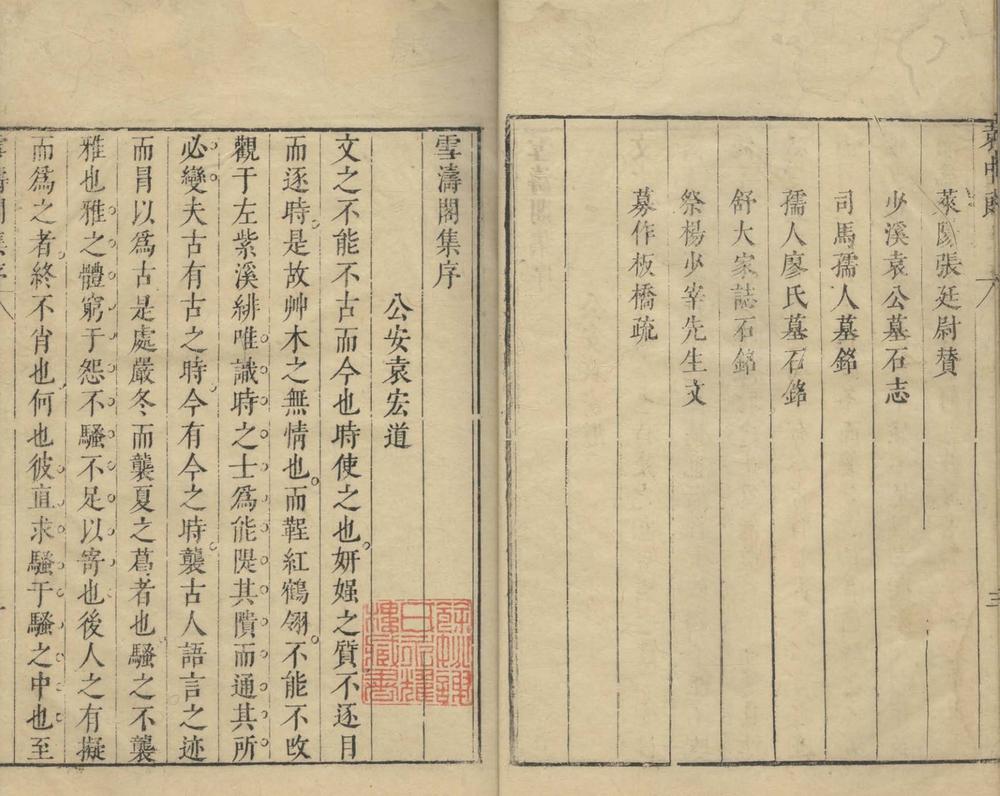 袁中郎
三
萊陽張廷尉贊
少溪袁公墓石志
司馬孺人墓銘
孺人廖氏墓石銘
舒大家誌石銘
祭楊少宰先生文
募作板橋疏
雪濤閣集序
公安袁宏道
餘姚謝
氏永耀
樓藏書
文之不能不古而今也時使之也妍媸之質不逐目
而逐時是故艸木之無情也而鞓紅鶴翎不能不攺
觀于左紫溪緋唯識時之士爲能隄其隤而通其所
必變夫古有古之時今有今之時襲古人語言之迹
而冐以爲古是處嚴冬而襲夏之葛者也騷之不襲
雅也雅之體窮于怨不騷不足以寄也後人之有擬
而爲之者終不肖也何也彼直求騷于騷之中也至
雪濤閣集序
一